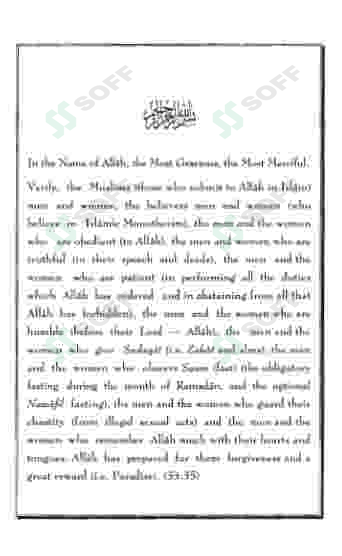 SOFF
SOFF
In the Name of Allâh, the Most Gracious, the Most Merciful.
Verily, the Muslims (those who submit to Allâh in Islâm)
men and women, the believers men and women (who
believe in Islâmic Monotheism), the men and the women
who are obedient (to Allâh), the men and women who are
truthful (in their speech and deeds), the men and the
women who are patient (in performing all the duties
which Allâh has ordered and in abstaining from all that
Allâh has forbidden), the men and the women who are
humble (before their Lord — Allâh), the men and the
women who give Sadaqât (i.e. Zakât and alms) the men
and the women who observe Saum (fast) (the obligatory
fasting during the month of Ramadân, and the optional
Nawâfil fasting), the men and the women who guard their
chastity (from illegal sexual acts) and the men and the
women who remember Allâh much with their hearts and
tongues. Allâh has prepared for them forgiveness and a
great reward (i.e. Paradise). (33:35)